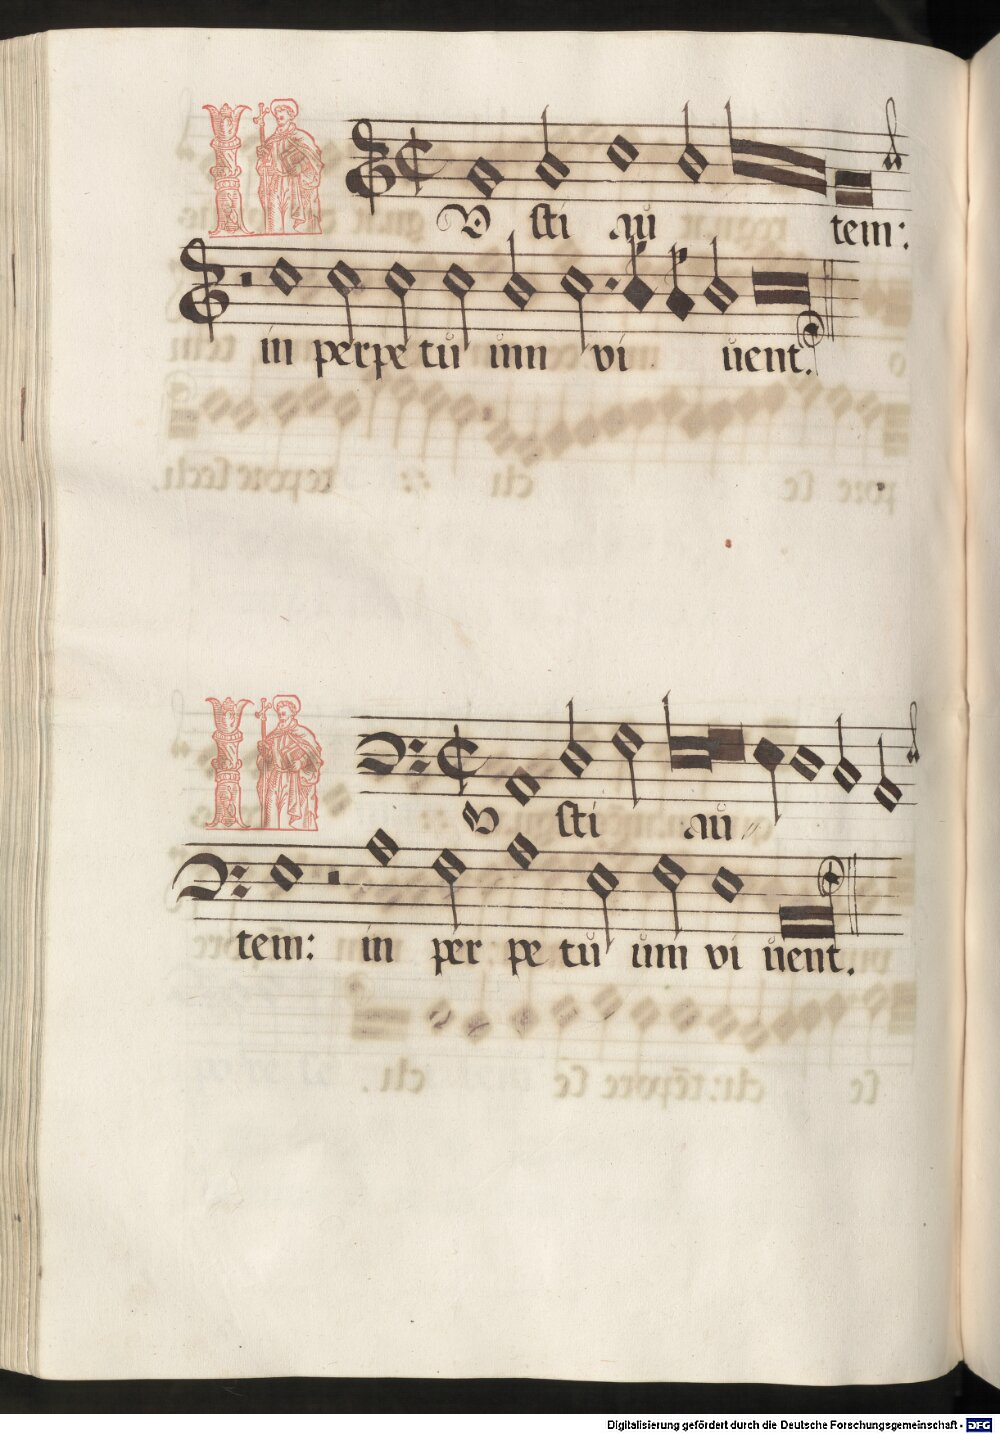 I Vsti aů tem:
in perpe tů ům vi ůent.
I Vsti aů
tem: in per pe tů ům vi ůent.
Digitalisierung gefördert durch die Deutsche Forschungsgemeinschaft - DFG